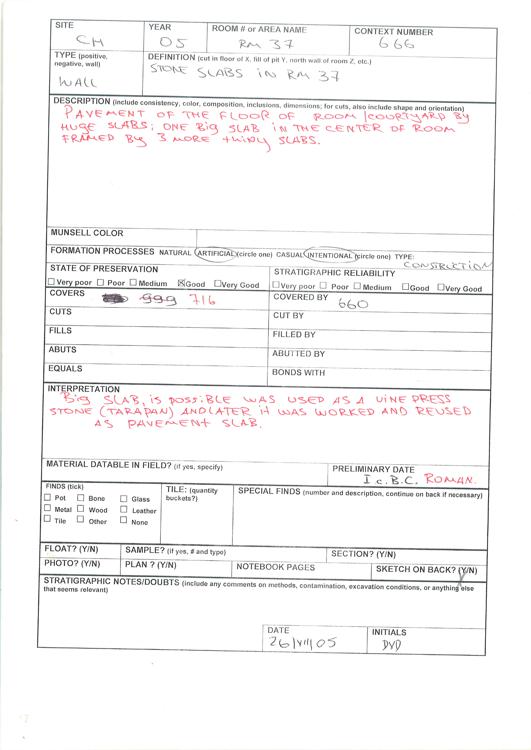 SITE
CH
YEAR
05
ROOM # or AREA NAME
RM 37
CONTEXT NUMBER
666
TYPE (positive, negative, wall)
WALL
DEFINITION (cut in floor of X, fill of pit Y, north wall of room Z, etc.)
STONE SLABS IN RM 37
DESCRIPTION (include consistency, color, composition, inclusions, dimensions; for cuts, also include shape and orientation)
PAVEMENT OF THE FLOOR OF ROOM/COURTYARD BY
HUGE SLABS; ONE BIG SLAB IN THE CENTER OF ROOM
FRAMED BY 3 MORE thiny SLABS.
MUNSELL COLOR
FORMATION PROCESSES NATURAL ARTIFICIAL (circle one) CASUAL INTENTIONAL (circle one) TYPE:
CONSTRUCTION
STATE OF PRESERVATION
☐Very poor ☐Poor ☐Medium ☒Good ☐Very Good
STRATIGRAPHIC RELIABILITY
☐Very poor ☐Poor ☐Medium ☐Good ☐Very Good
COVERS 999 716
COVERED BY 660
CUTS
CUT BY
FILLS
FILLED BY
ABUTS
ABUTTED BY
EQUALS
BONDS WITH
INTERPRETATION
BIG SLAB, IS POSSIBLE WAS USED AS A VINE PRESS
STONE (TARAPAN) AND LATER it WAS WORKED AND REUSED
AS PAVEMENT SLAB.
MATERIAL DATABLE IN FIELD? (if yes, specify)
PRELIMINARY DATE
I c. B.C. ROMAN.
FINDS (tick)
☐ Pot ☐ Bone ☐ Glass
☐ Metal ☐ Wood ☐ Leather
☐ Tile ☐ Other ☐ None
TILE: (quantity buckets?)
SPECIAL FINDS (number and description, continue on back if necessary)
FLOAT? (Y/N)
SAMPLE? (if yes, # and type)
SECTION? (Y/N)
PHOTO? (Y/N)
PLAN ? (Y/N)
NOTEBOOK PAGES
SKETCH ON BACK? (Y/N)
STRATIGRAPHIC NOTES/DOUBTS (include any comments on methods, contamination, excavation conditions, or anything else
that seems relevant)
DATE
26/VII/05
INITIALS
DVD